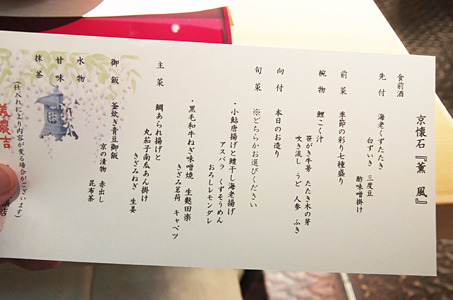 京懐石『薫 風』
食前酒
先付 海老くずたたき
白ずいき 三度豆
酢味噌掛け
前菜 季節の彩り七種盛り
椀物 鯉こく汁
笹がき牛蒡 たたき木の芽
吹き流し うど 人参 ふき
向付 本日のお造り
旬菜 ※どちらかお選びください
・小鮎唐揚げと鱧干し海老揚げ
アスパラ くずそうめん
おろしレモンダレ
・黒毛和牛ねぎ味噌焼 生麩田楽
きざみ茗荷 キャベツ
主菜 鯛あられ揚げと
丸茄子南瓜あん掛け
きざみねぎ 生姜
御飯 釜炊き青豆御飯
京の漬物 赤出し
昆布茶
水物
甘味
抹茶
(仕入れにより内容が変る場合がございます)
美濃吉
店